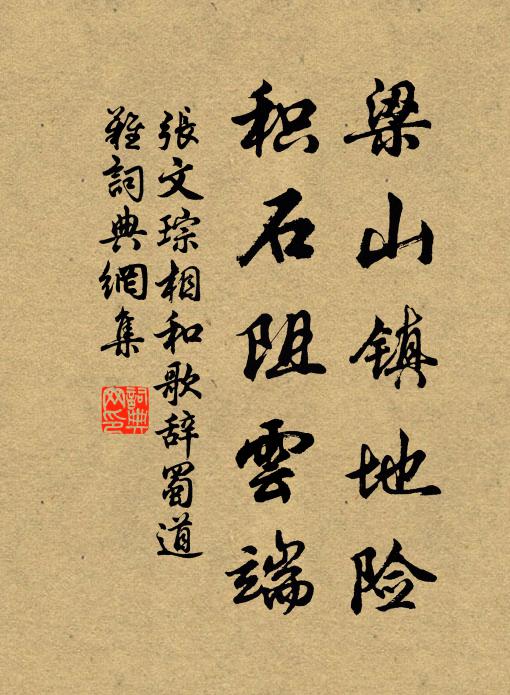 梁山镇地险
积石阻雲端
張文琮相和歌辞蜀道
難詞典網集
詞典网印